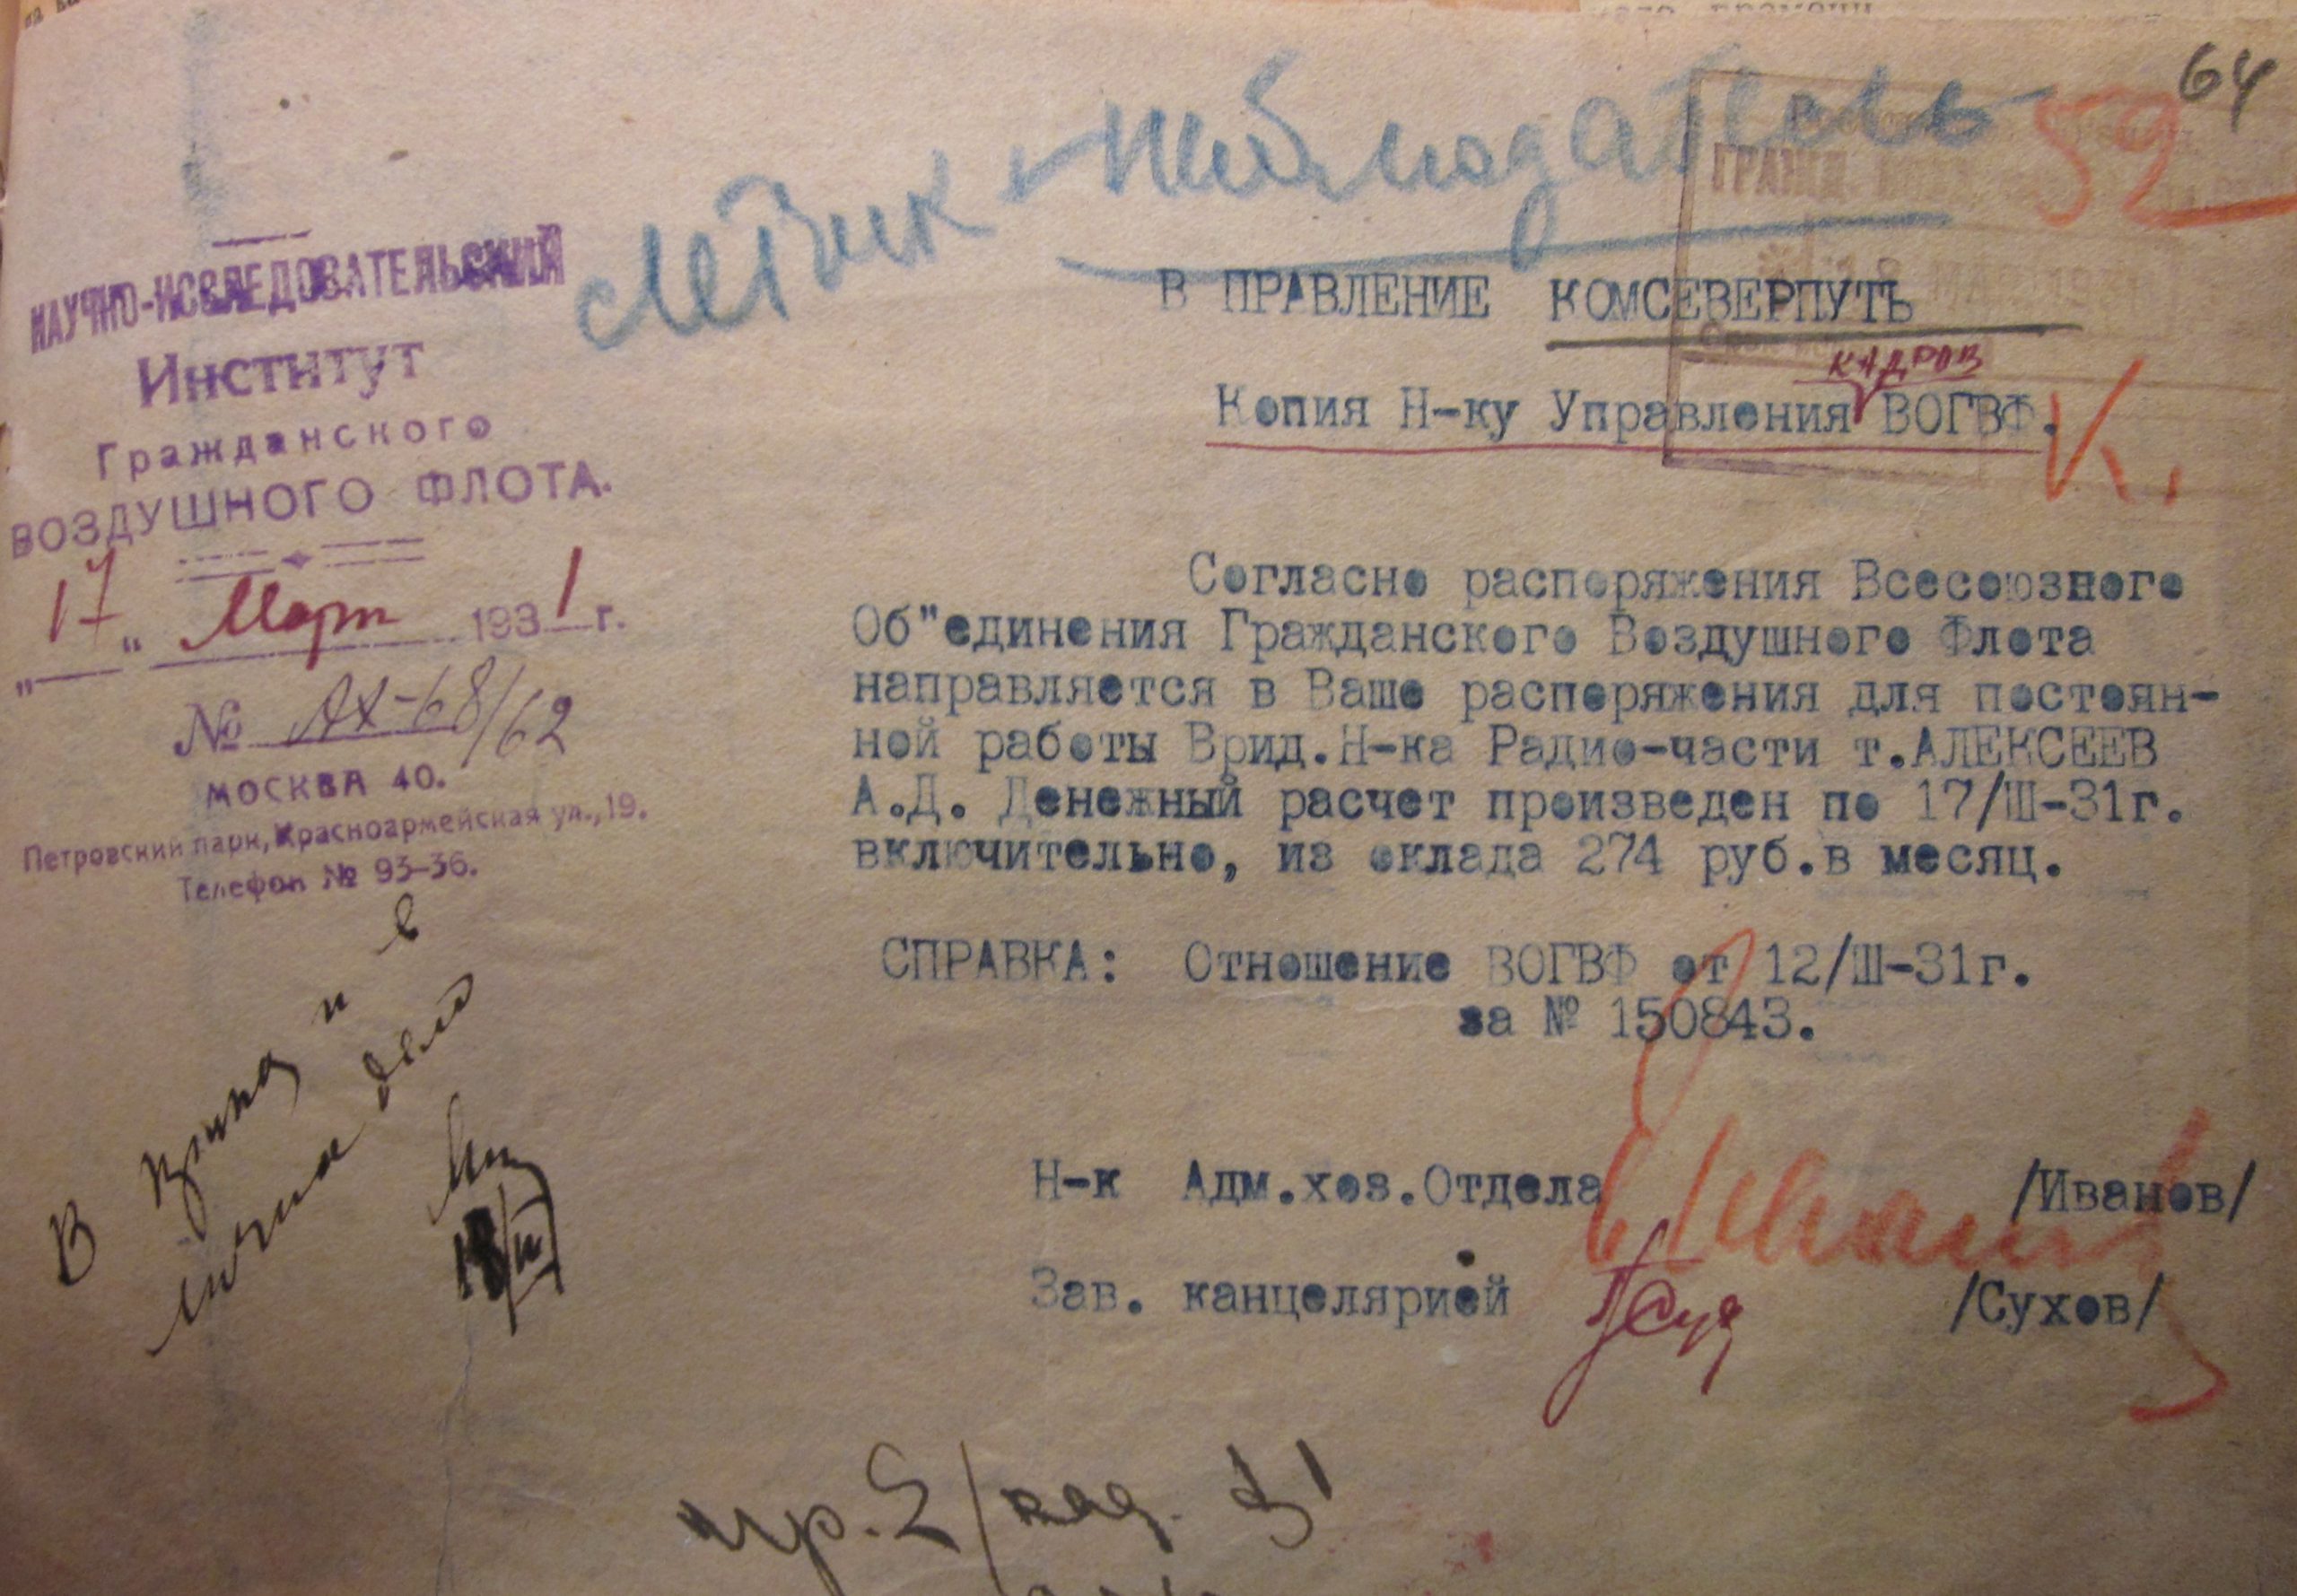 64
52
лётчик-наблюдатель
НАУЧНО-ИССЛЕДОВАТЕЛЬСКИЙ
Институт
Гражданского
ВОЗДУШНОГО ФЛОТА.
"17" Март 1931 г.
№ АХ-68/62
МОСКВА 40.
Петровский парк, Красноармейская ул., 19.
Телефон № 93-36.
В ПРАВЛЕНИЕ КОМСЕВЕРПУТЬ
КАДРОВ
Копия Н-ку Управления ВОГВФ.
К.
Согласно распоряжения Всесоюзного
Об"единения Гражданского Воздушного Флота
направляется в Ваше распоряжения для постоян-
ной работы Врид.Н-ка Радио-части т.АЛЕКСЕЕВ
А.Д. Денежный расчет произведен по 17/Ш-31г.
включительно, из оклада 274 руб.в месяц.
СПРАВКА: Отношение ВОГВФ от 12/Ш-31г.
за № 150843.
В и в
личное дело
18/III
Н-к Адм.хоз.Отдела /Иванов/
Зав. канцелярией /Сухов/
пр. 2/кад.